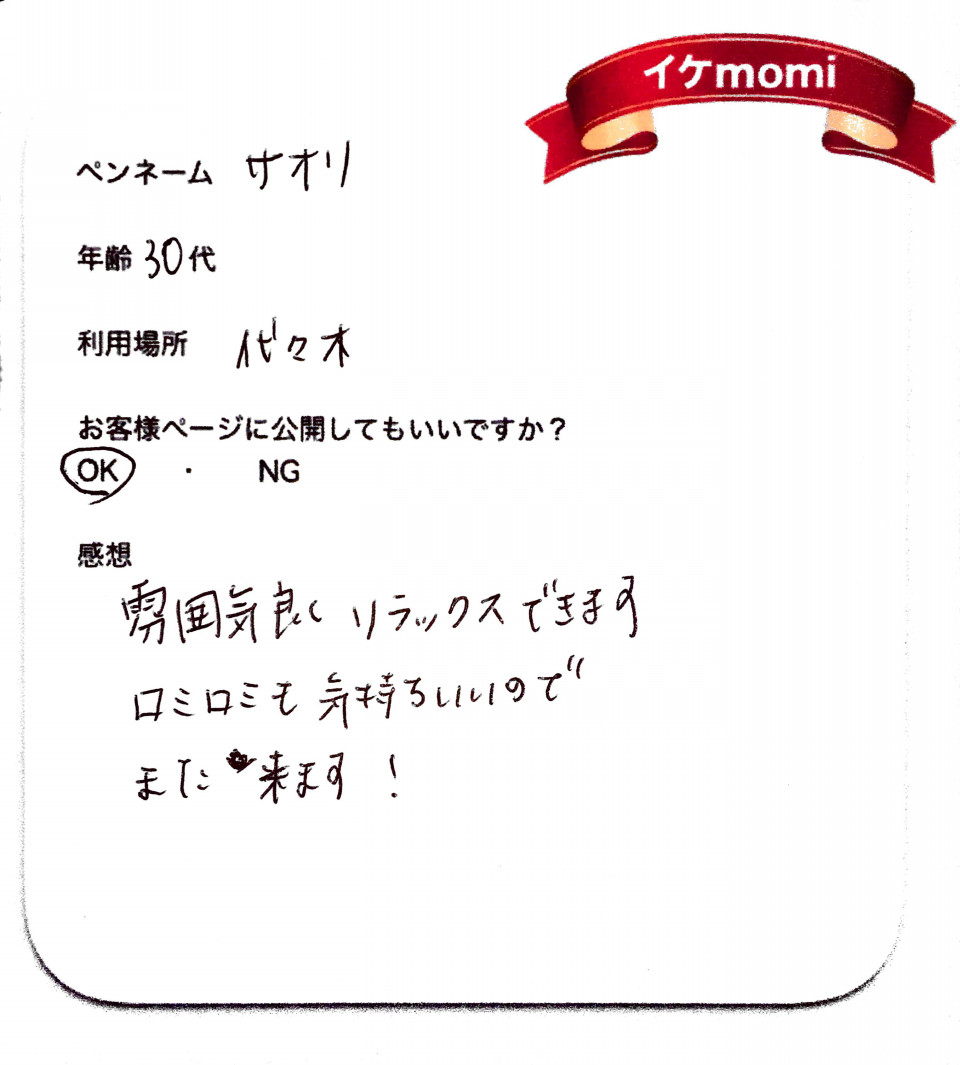 イケmomi
ペンネーム サオリ
年齢 30代
利用場所 代々木
お客様ページに公開してもいいですか？
OK ・ NG
感想
雰囲気良く リラックスできます
ロミロミも 気持ちいいので
また 来ます！